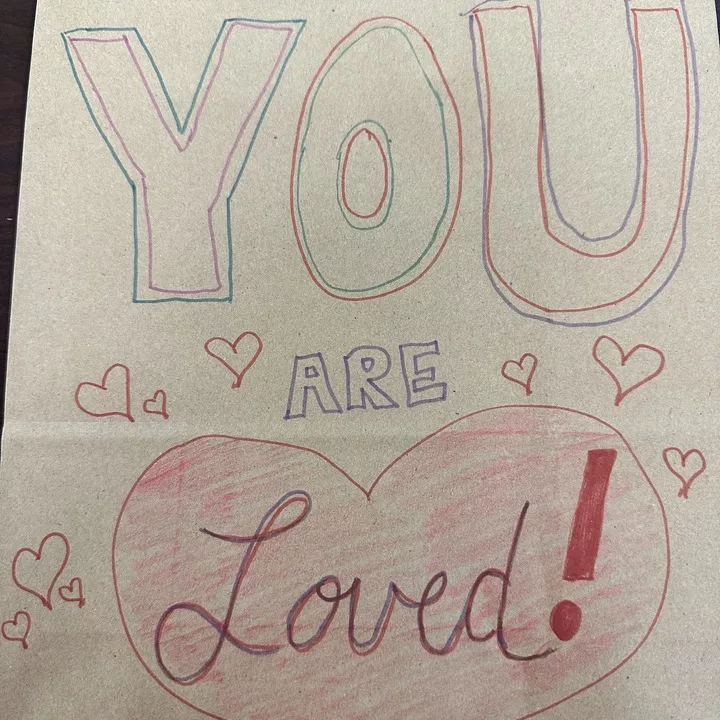 YOU
ARE
Loved!